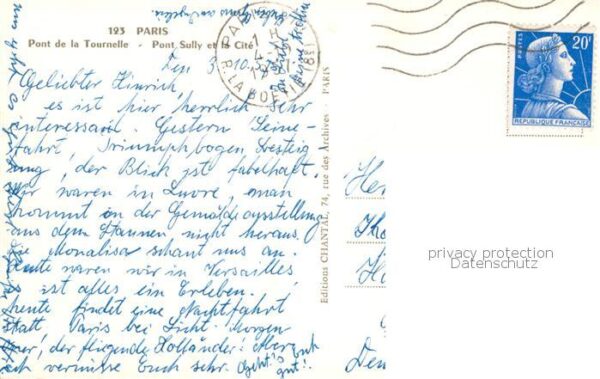 123 PARIS
Pont de la Tournelle - Pont Sully et la Cité
Den 3.10.
Geliebter Hinrich,
es ist hier herrlich, sehr
interessant. Gestern Seine-
fahrt, Triumphbogen Besteig-
ung, der Blick ist fabelhaft.
Wir waren in Luvre, man
kommt in der Gemäldeausstellung
aus dem Staunen nicht heraus.
Die Monalisa schaut uns an.
Heute waren wir in Versailles
ist alles ein Erleben.
heute findet eine Nachtfahrt
statt Paris bei Licht. Morgen
der fliegende Holländer! Aber
ich vermisse Euch sehr. Geht's Euch
gut!
Editions CHANTAL, 74, rue des Archives - PARIS
PARIS
R. LA BOETIE
POSTES 20F
REPUBLIQUE FRANÇAISE
privacy protection
Datenschutz